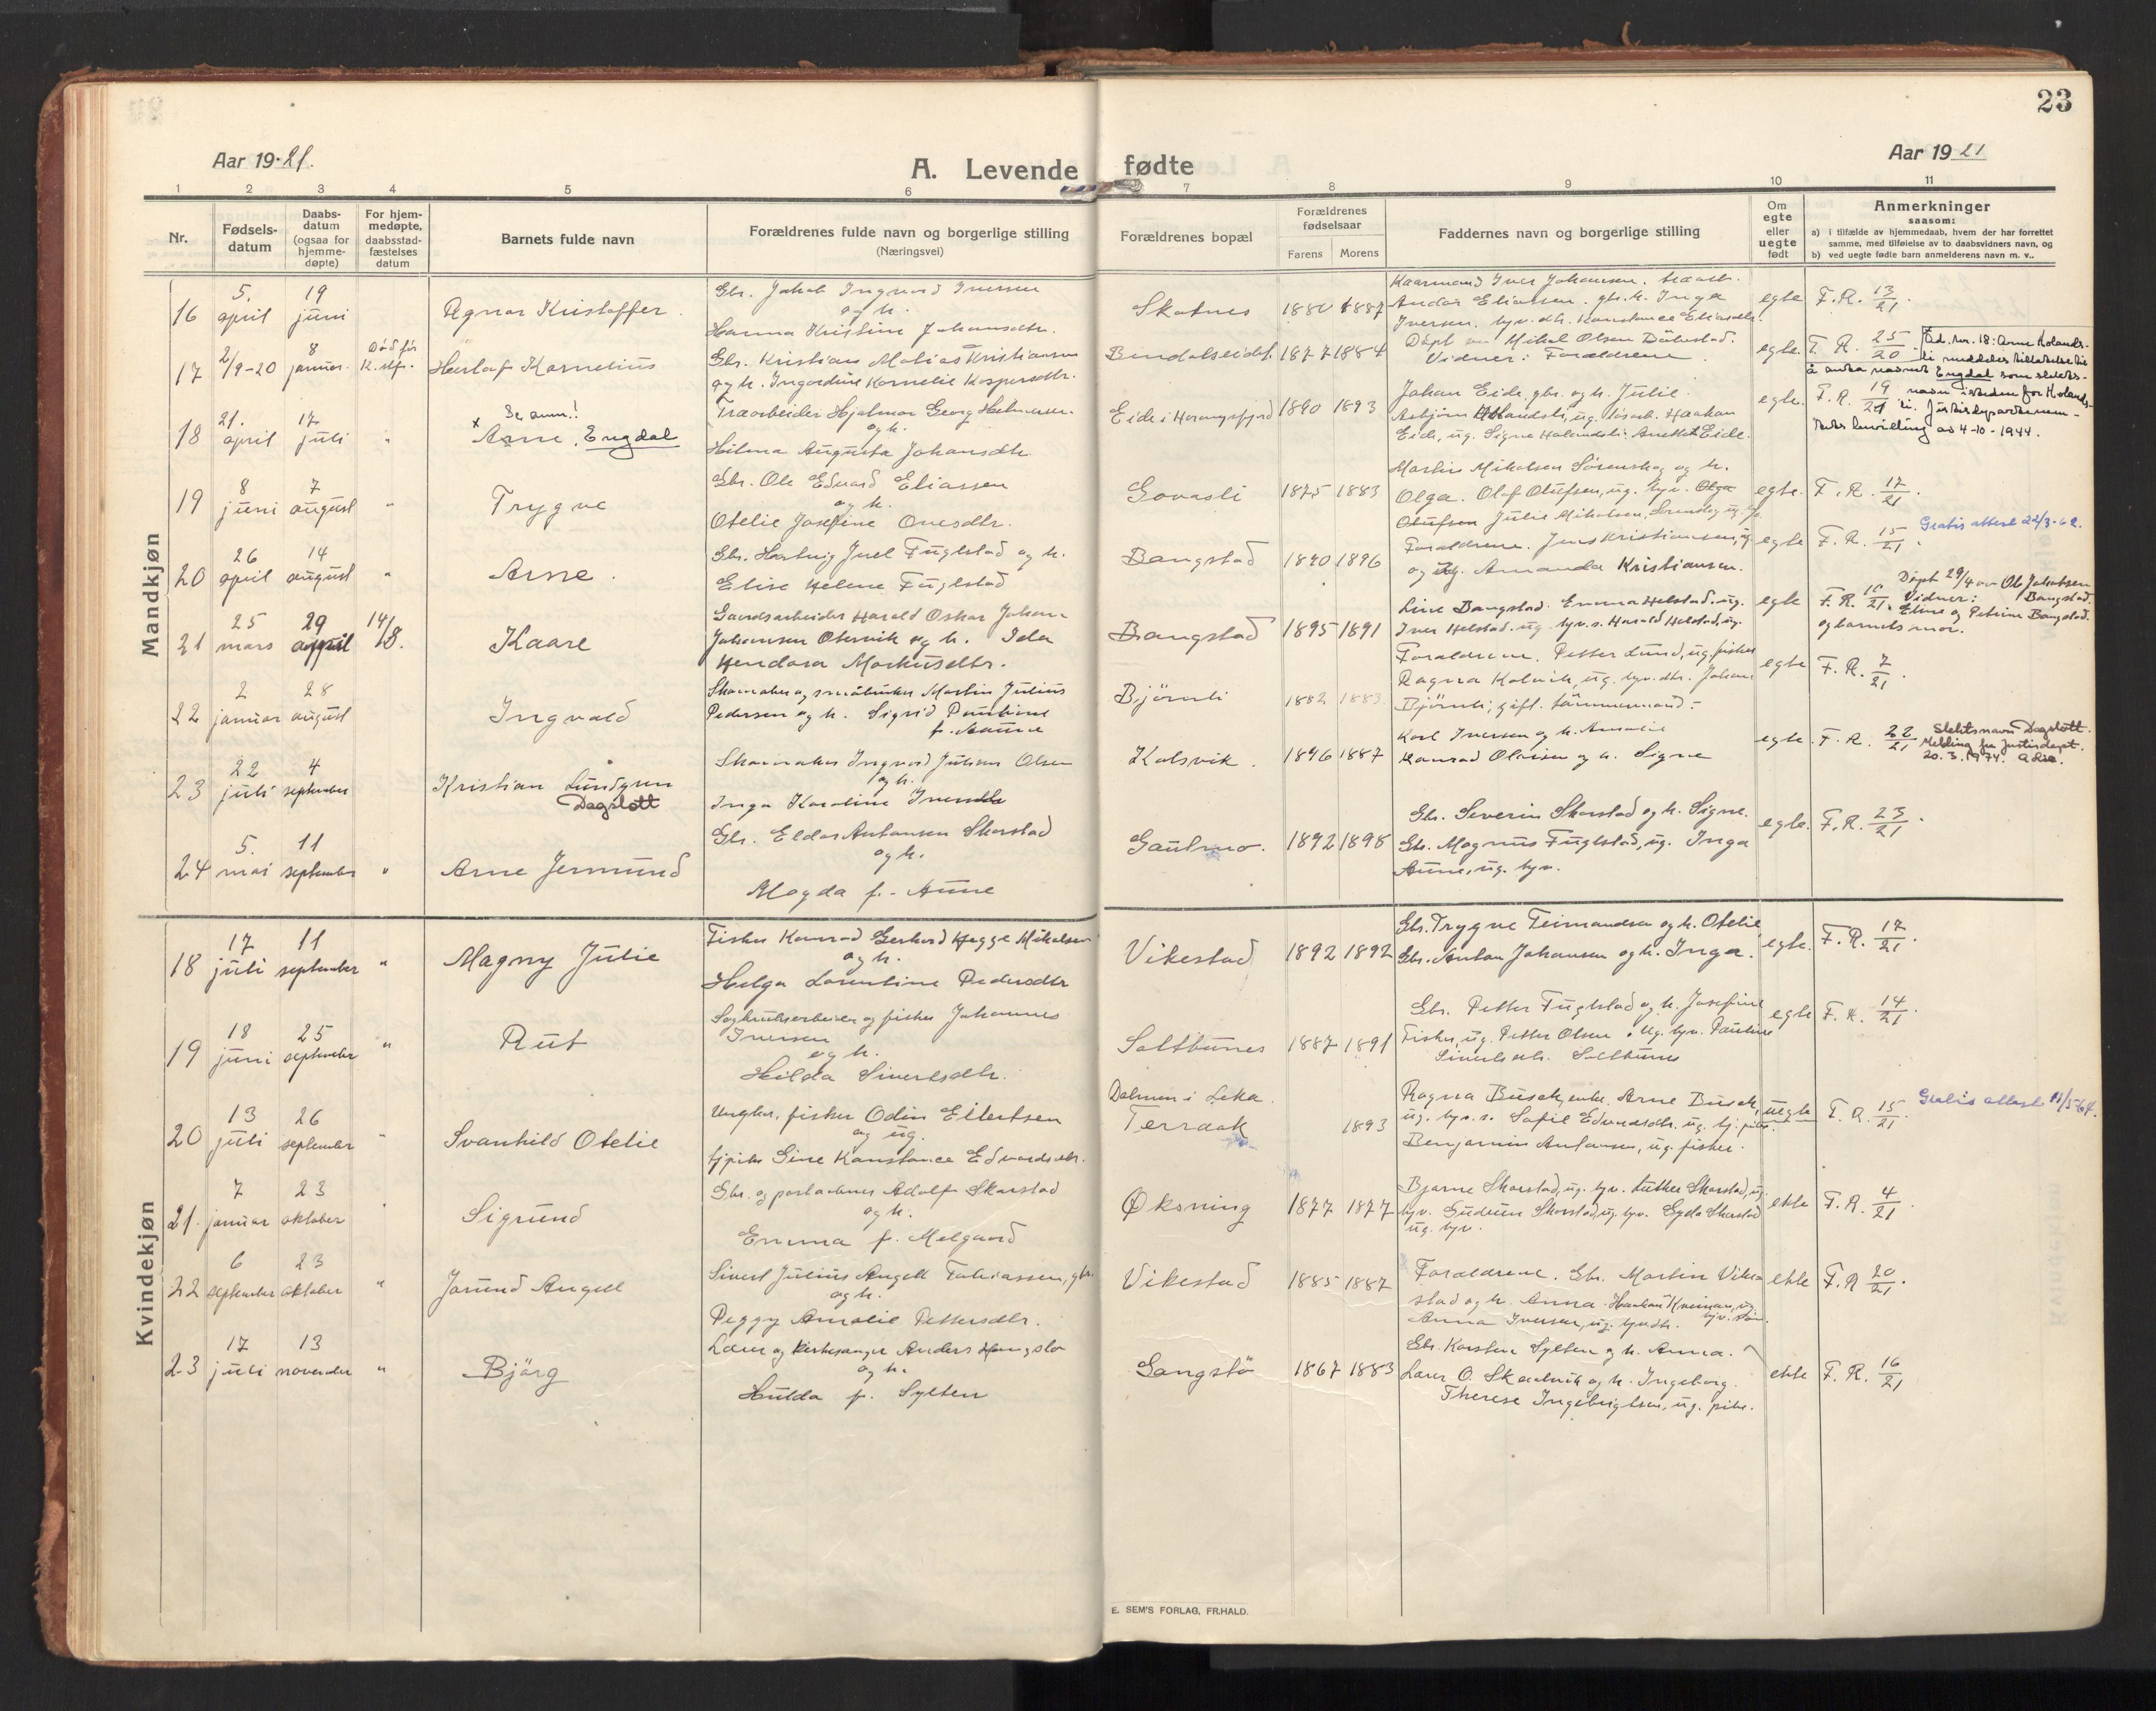 23
Aar 19 21.
A. Levende fødte
Aar 19 21
1 2 3 4 5 6 7 8 9 10 11
Nr.
Fødsels-
datum
Daabs-
datum
(ogsaa for
hjemme-
døpte)
For hjem-
medøpte,
daabsstad-
fæstelses
datum
Barnets fulde navn
Forældrenes fulde navn og borgerlige stilling
(Næringsvei)
Forældrenes bopæl
Forældrenes
fødselsaar
Farens Morens
Faddernes navn og borgerlige stilling
Om
egte
eller
uegte
født
Anmerkninger
saasom:
a) i tilfælde av hjemmedaab, hvem der har forrettet
samme, med tilføielse av to daabsvidners navn, og
b) ved uegte fødte barn anmelderens navn m. v..
Mandkjøn
16
5. april
19 juni
Agnar Kristoffer
Gbr. Jakob Ingvard Iversen
og h.
Hanna Kristine Johansdtr.
Skotnes
1880 1887
Kaarmand Iver Johansen.
Andor Eliassen. gbr. h. Inga
Iversen. tyv. dtr. Konstance Eliasdtr.
egte
F.R. 13/21.
17
2/9-20
8 januar.
Død før
12. slf.
Herlaf Kornelius
Gbr. Kristian Matias Kristiansen
og h. Ingardine Kornelie Kaspersdtr.
Bindalseidet
1877 1884
Døpt av Mikal Olsen Bøkestad.
Vidner: Forældrene
egte.
F. R. 25/20.
18
21. april
17. juli
"
Se anm.!
x Arne. Engdal
Træarbeider Hjalmar Georg Helmersen.
og h.
Hilma Augusta Johansdtr
Eide i Horangsfjord
1890 1893
Johan Eide, gbr. og h. Julie.
Asbjørn Holandsli, ug. løsarb. Haakon
Eide, ug. Signe Holandsli. Anette Eide.
egte.
F. R. 19/21
Ad. nr. 18: Arne Holands-
li meddeles tillatelse til
å anta navnet Engdal som slekts-
navn istedenfor Holands-
li. Justisdepartemen-
tets bevilling av 4-10-1944.
19
8 juni
7 august
"
Trygve
Gbr. Ole Edvard Eliassen
og h.
Otelie Josefine Onesdtr.
Govasli
1875 1883
Martin Mikalsen Sørenskog og h.
Olga. Olaf Olufsen, ug. tyv. Olga
Olufsen Julie Mikalsen, Sørenskog ug.
egte.
F. R. 17/21.
20
26 april
14 august
"
Arne.
Gbr. Hartvig Juel Fuglstad og h.
Elise Helene Fuglstad
Bangstad
1890 1896
Forældrene. Jens Kristiansen, ug
og ug. Amanda Kristiansen.
egte
F. R. 15/21.
Gratis attest 22/3-62.
21
25 mars
29 april
14/8.
Kaare
Gaardsarbeider Harald Oskar Johan
Johansen Otervik og h. Ida
Hendora Markusdtr.
Bangstad
1895 1891
Line Bangstad. Emma Helstad. ug.
Iver Helstad. ug. tyv. s. Harald Helstad, ug.
egte
F. R. 16/21.
Døpt 29/4 av Ole Jakobsen
Vidner: Bangstad.
Eline og Petrine Bangstad.
og barnets mor.
22
2 januar
28 august
Ingvald
Skomaker og småbruker Martin Julius
Pedersen og h. Sigrid Pauline
f. Aaune
Bjørnli
1882 1883
Forældrene. Petter Lund, ug. fisker
Ragna Kolvik, ug. tyv. dtr. Johan
Bjørnli, gift. tømmermand.-
egte
F. R. 7/21.
23
22 juli
4 september
Kristian Lundgren
Dagslott
Skomaker Ingvard Julius Olsen
og h.
Inga Karoline Iversdtr
Kalsvik.
1896 1887
Karl Iversen og h. Amalie
Konrad Olaisen og h. Signe
egte.
F. R. 22/21
Slektsnavn Dagslott.
Melding fra Justisdept.
20. 3. 1974.
24
5. mai
11 september
"
Arne Jermund
Gbr. Eldor Antonsen Skarstad
og h.
Magda f. Aune
Gautmo.
1892 1898
Gbr. Severin Skarstad og h. Signe.
Gbr. Magnus Fuglstad, ug. Inga
Aune, ug. tyv.
egte.
F. R. 23/21.
Kvindekjøn
18
17 juli
11 september
"
Magny Julie
Fisker Konrad Gerhard Hegge Mikalsen
og h.
Helga Laurentine Pedersdtr
Vikestad
1892 1892
Gbr. Trygve Teimandsen og h. Otelie
Gbr. Anton Johansen og h. Inga.
egte.
F. R. 17/21.
19
18 juni
25 september
"
Rut
Sagbruksarbeider og fisker Johannes
Iversen
og h.
Hilda Sivertsdtr.
Saltbunes
1887 1891
Gbr. Petter Fuglstad og h. Josefine
Fisker, ug. Petter Olsen. ug. tyv. Pauline
Sivertsdtr. Saltbunes
egte
F. R. 14/21.
20
13 juli
26 september
"
Svanhild Otelie
Ungkar, fisker Odin Eilertsen
og ug.
tjpike Gine Konstance Edvardsdtr.
Dalmen i Leka.
Terraak
1893
Ragna Busch, enke. Arne Busch,
ug. tyv. s. Sofie Edvardsdtr. ug. tj. pike.
Benjamin Antonsen, ug. fisker.
uegte
F. R. 15/21.
Gratis attest 11/5-64.
21.
7 januar
23 oktober
"
Sigrund
Gbr. og postaabner Adolf Skarstad
og h.
Emma f. Melgaard
Øksning
1877 1877
Bjarne Skarstad, ug. tyv. Luther Skarstad, ug
tyv. Gudrun Skarstad, ug. tyv. Gyda Skarstad
ug. tyv.
ekte
F. R. 4/21.
22
6 september
23 oktober
"
Jorund Angell
Sivert Julius Angell Fabiassen, gbr.
og h.
Peggy Amalie Pettersdtr.
Vikestad
1885 1887
Forældrene. Gbr. Martin Vike-
stad og h. Anna. Haakon Kveinan, ug.
Anna Iversen, ug. tyv. dtr. tyv. søn.
ekte
F. R 20/21.
23
17 juli
13 november
"
Bjørg
Lærer og kirkesanger Anders Hongslo
og h.
Hulda f. Sylten
Gangstø
1867 1883
Gbr. Karsten Sylten og h. Anna.
Lærer O. Skarlvik og h. Ingeborg.
Therese Ingebrigtsen, ug. pike.
ekte
F. R. 16/21
E. SEM'S FORLAG, FR.HALD.